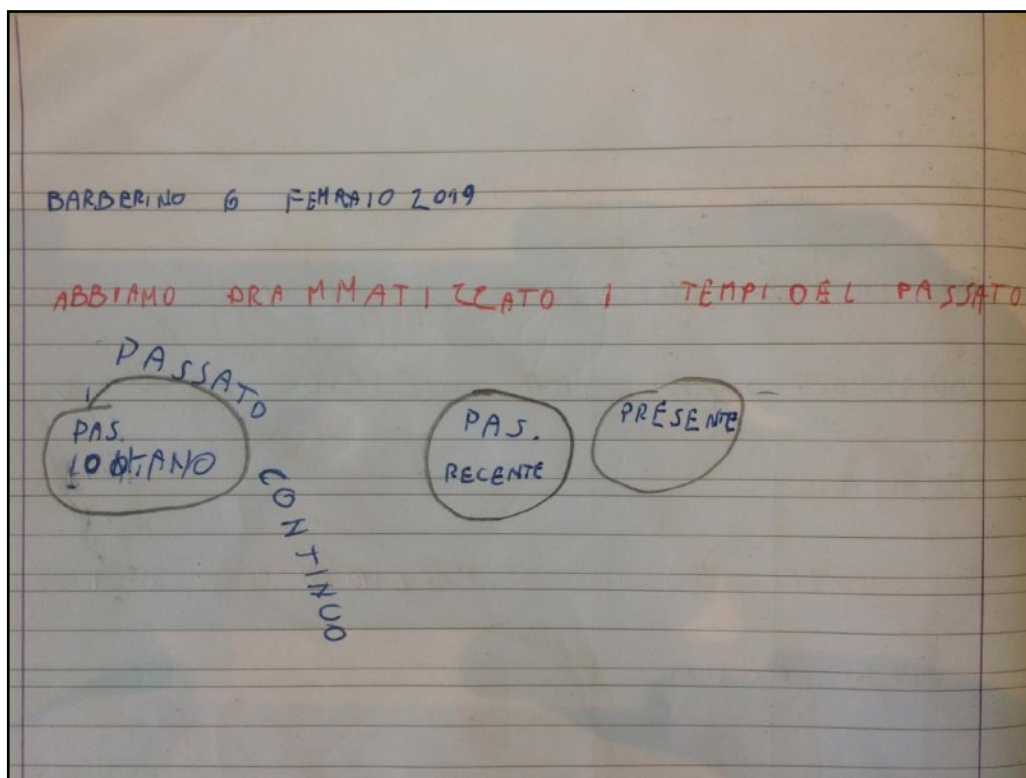 BARBERINO 6 FEMRAIO 2019
ABBIAMO DRAMMATIZZATO I TEMPI DEL PASSATO
PASSATO CONTINUO
PAS.
PAS.
RECENTE
PRESENTE